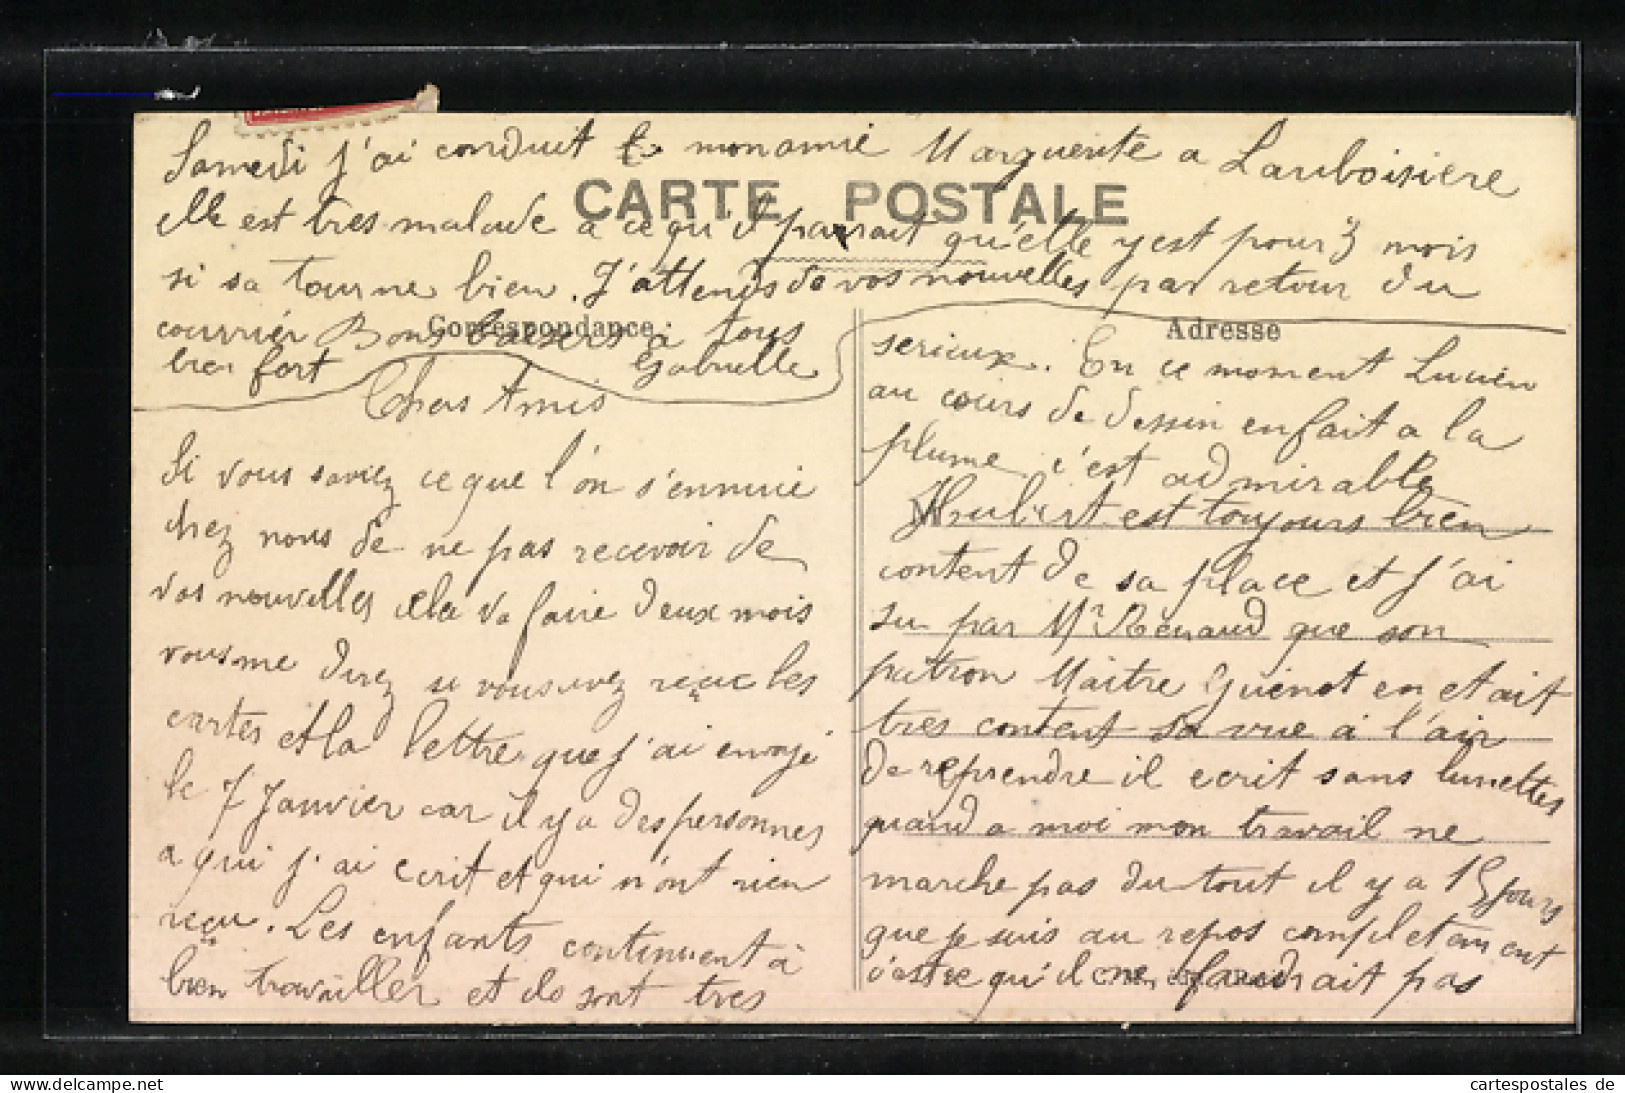 Samedi j'ai conduit mon amie Marguerite a Lariboisiere
elle est tres malade a ce qu'il parrait qu'elle y est pour 3 mois
si sa tourne bien. J'attends de vos nouvelles par retour du
courrier Bons baisers a tous
bien fort Gabrielle
CARTE POSTALE
Correspondance
Adresse
Chers Amis
Si vous saviez ce que l'on s'ennuie
chez nous de ne pas recevoir de
vos nouvelles cela va faire deux mois
vous me direz si vous avez reçue les
cartes et la lettre que j'ai envoyé
le 7 Janvier car il y a des personnes
a qui j'ai ecrit et qui n'ont rien
reçu. Les enfants continuent à
bien travailler et ils sont tres
serieux. En ce moment Lucien
au cours de dessin en fait a la
plume c'est admirable
Hubert est toujours bien
content de sa place et j'ai
su par Mr Rénaud que son
patron Maitre Guenot en etait
tres content Sa vue à l'air
de reprendre il ecrit sans lunettes
quand a moi mon travail ne
marche pas du tout il y a 15 jours
que je suis au repos completement
c'est ce qu'il ne faudrait pas
476_154
cartespostales de